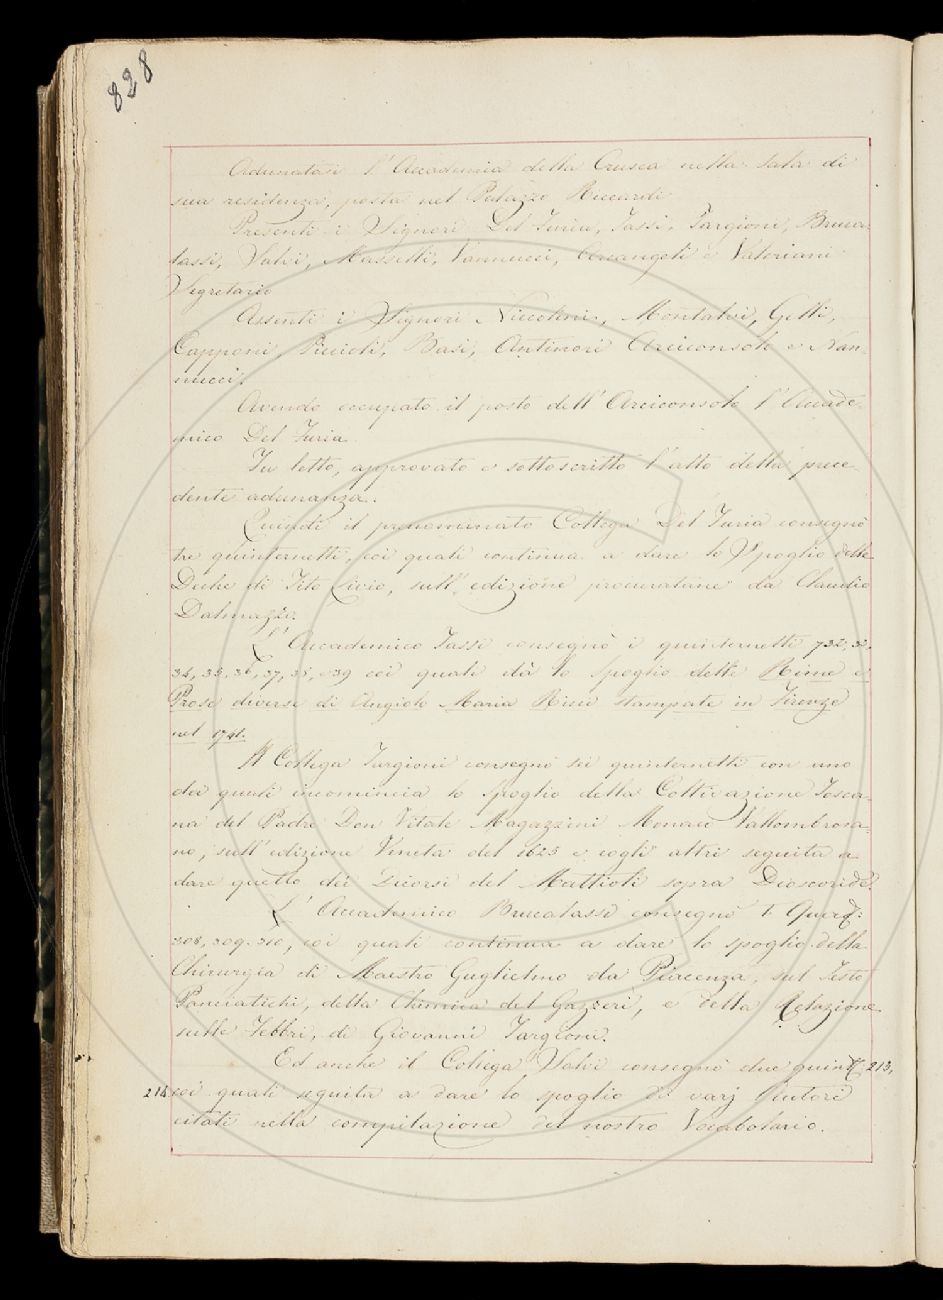 828
Adunatasi l'Accademia della Crusca nella sala di
sua residenza, posta nel Palazzo Riccardi
Presenti i Signori Del Furia, Tassi, Targioni, Bruca-
lassi, Salvi, Masselli, Vannucci, Arcangeli e Valeriani
Segretario
Assenti i Signori Niccolini, Montalvi, Gelli,
Capponi, Puccioti, Basi, Antinori Arciconsolo e Nan-
nucci.
Avendo occupato il posto dell'Arciconsolo l'Accade-
mico Del Furia
Fu letto, approvato e sottoscritto l'atto della prece-
dente adunanza.
Quindi il prenominato Collega Del Furia consegnò
tre quinternetti, coi quali continua a dare lo Spoglio delle
Deche di Tito Livio, sull'edizione procuratane da Claudio
Dalmazzo.
L'Accademico Tassi consegnò i quinternetti 732, 33,
34, 35, 36, 37, 38, e 39 coi quali dà lo spoglio delle Rime e
Prose diverse di Angiolo Maria Ricci stampate in Firenze
nel 1741.
Il Collega Targioni consegnò sei quinternetti con uno
dei quali incomincia lo spoglio della Coltivazione Tosca-
na del Padre Don Vitale Magazzini Monaco Vallombrosa-
no, sull'edizione Veneta del 1625 e cogli altri seguita a
dare quello dei Dicorsi del Mattioli sopra Dioscoride.
L'Accademico Brucalassi consegnò i Quert:
308, 309. 310, coi quali continua a dare lo spoglio della
Chirurgia di Maestro Guglielmo da Piacenza, sul Testo
Panciatichi, della Chimica del Gazzeri, e della Relazione
sulle Febbri, di Giovanni Targioni.
Ed anche il Collega Salvi consegnò due quint: 213,
214 coi quali seguita a dare lo spoglio di varj Autori
citati nella compilazione del nostro Vocabolario.